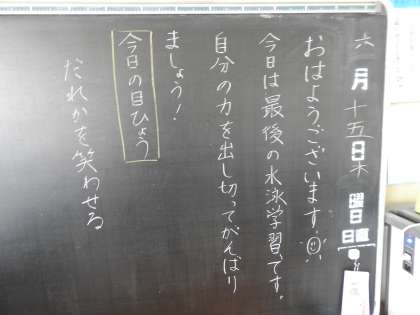 六月十五日木曜日
日直
おはようございます。
今日は最後の水泳学習です。
自分の力を出し切ってがんばり
ましょう！
今日の目ひょう
だれかを笑わせる